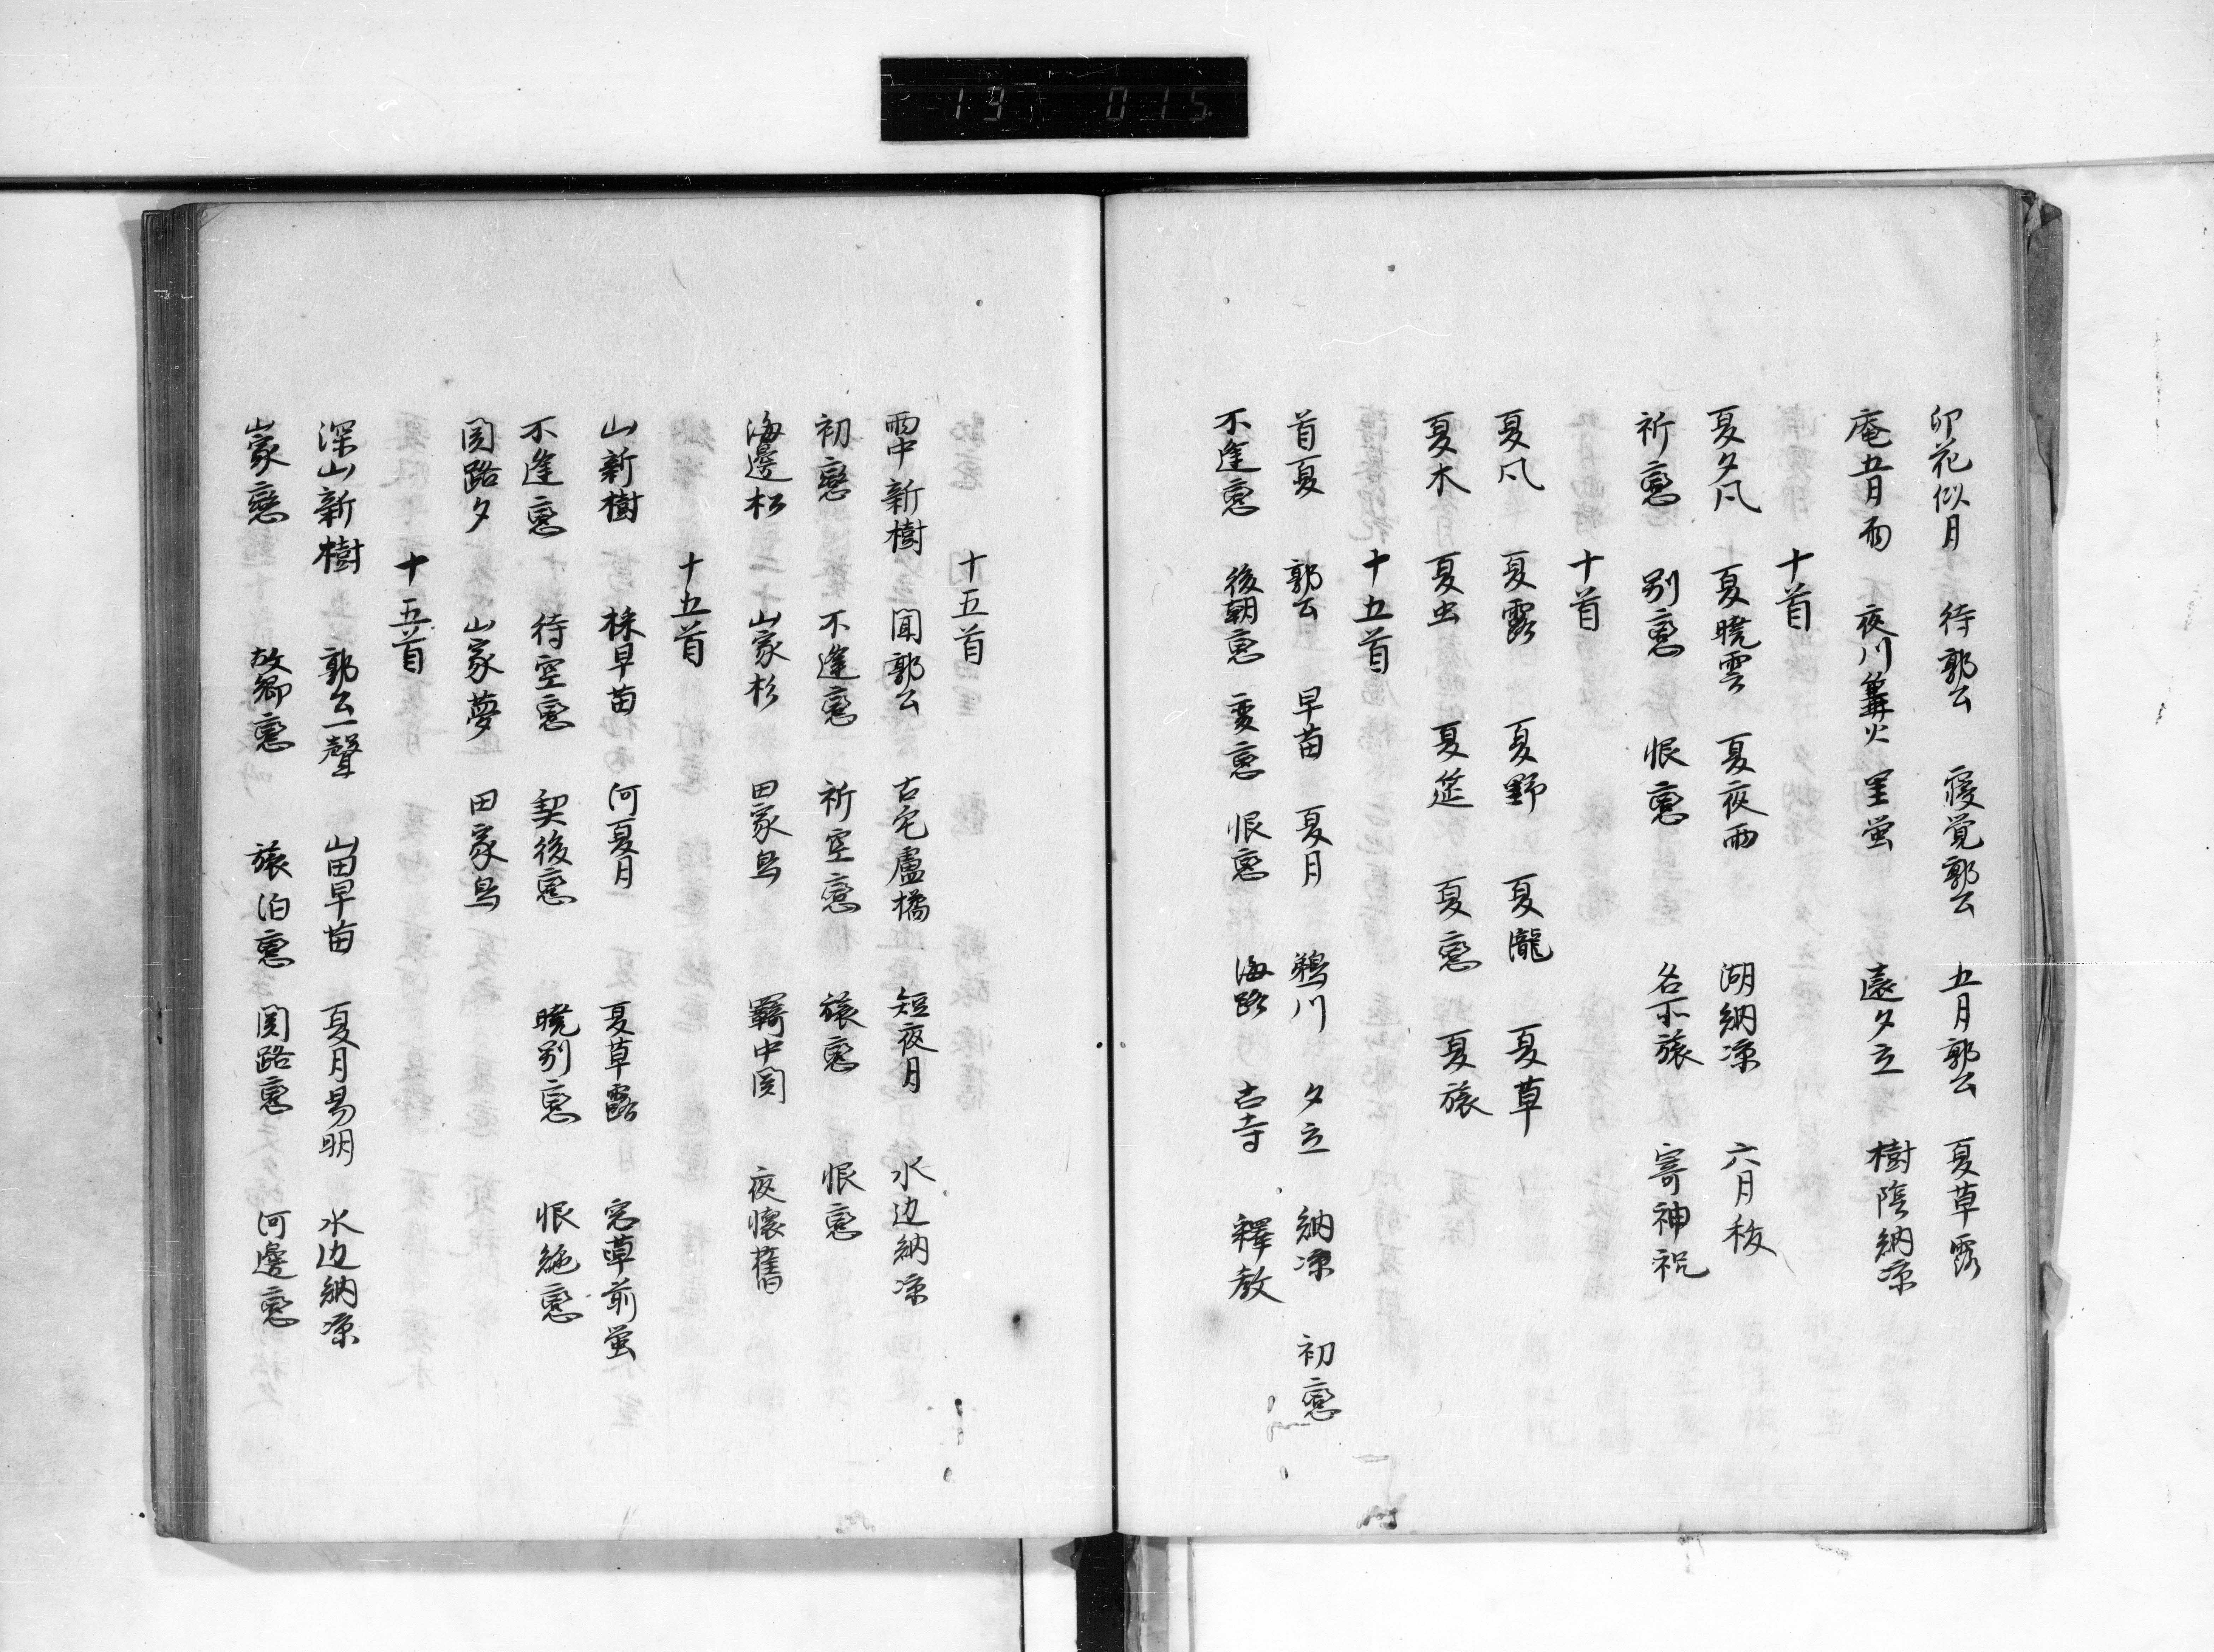 19 015
卯花似月 待郭公 寝覚郭公 五月郭公 夏草露
庵五月雨 夜川篝火 里蛍 遠夕立 樹陰納凉
十首
夏夕风 夏暁雲 夏夜雨 湖納凉 六月祓
祈戀 別戀 恨戀 名所旅 寄神祝
十首
夏风 夏露 夏野 夏瀧 夏草
夏木 夏虫 夏筵 夏戀 夏旅
十五首
首夏 郭公 早苗 夏月 鵜川 夕立 納凉 初戀
不逢戀 後朝戀 変戀 恨戀 海路 古寺 釋教
十五首
雨中新樹 聞郭公 古宅盧橘 短夜月 水辺納凉
初戀 不逢戀 祈空戀 旅戀 恨戀
海邊松 山家杉 田家鳥 羇中関 夜懐舊
十五首
山新樹 採早苗 河夏月 夏草露 窓草前蛍
不逢戀 待空戀 契後戀 曉別戀 恨絶戀
関路夕 山家夢 田家鳥
十五首
深山新樹 郭公一聲 山田早苗 夏月易明 水辺納凉
山家戀 故郷戀 旅泊戀 関路戀 河邊戀